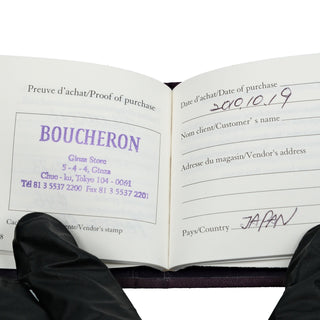 Preuve d'achat/Proof of purchase
BOUCHERON
Ginza Store
5-4-4, Ginza
Chuo-ku, Tokyo 104-0061
Tel 81 3 5537 2200 Fax 81 3 5537 2201
Vendor's stamp
8
Date d'achat/Date of purchase
2010.10.19
Nom client/Customer's name
Adresse du magasin/Vendor's address
Pays/Country JAPAN